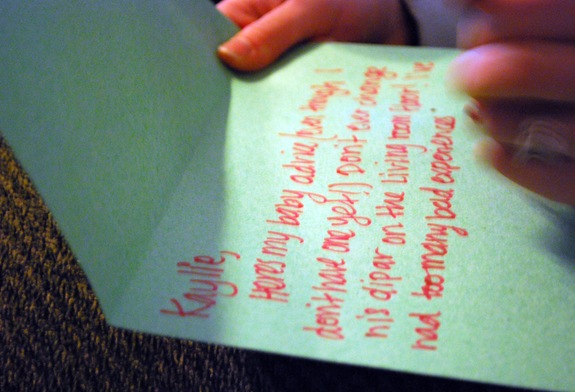 Kaylle,
Here's my baby advice (even though I
don't have one yet!) Don't ever change
his dipar on the living room floor! I've
had too many bad experiences.